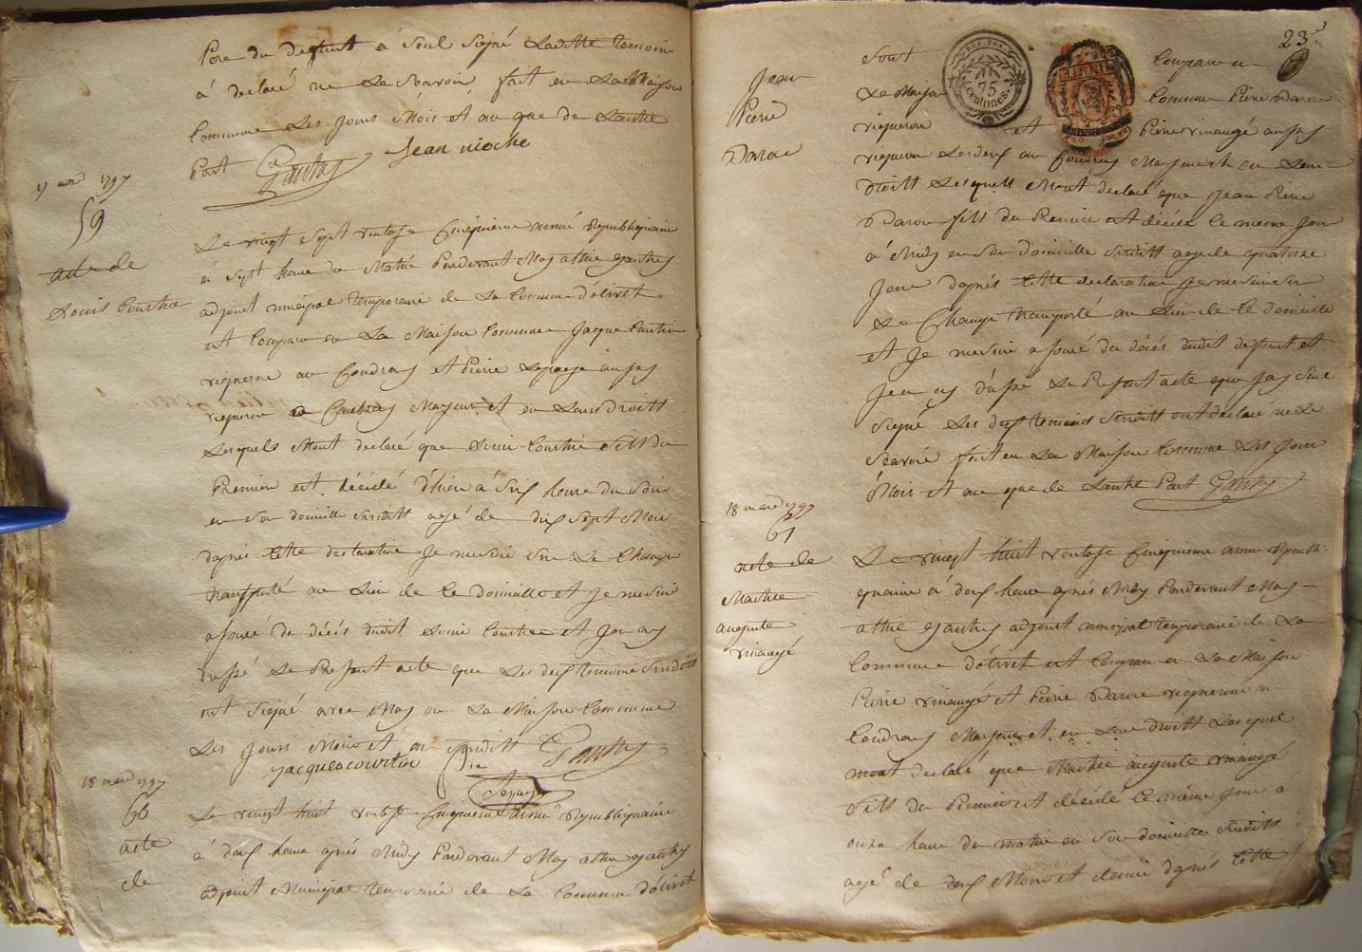 Pere du defunt a seul signé Laditte temoin
à declaré ne Le Savoir, fait en La Maison
Commune Les Jours Mois et an que de Lautre
Part Gautry Jean nioche
17 mars 1797
59
acte de
Louis Courtin
Le vingt Sept ventose Cinquieme année Republiquaine
à Sept heure du Matin Pardevant Moy gautry
adjoint municipal temporaire de La Commune d'olivet
est Comparu en La Maison Commune Jacque Courtin
vigneron au Coudray et Pierre Lepage aussy
vigneron Majeurs et en Leurs Droitt
Lesquels Mont declaré que Louis Courtin fils du
Premier est décédé d'hier à Six heure du Soir
en Son domicille Susditt agé de dix Sept Mois
daprés Cette declaration Je me suis Sur Le Champ
transporté au Lieu de Ce domicille et Je me suis
assuré du décés dudit Louis Courtin et Jen ay
Le Présent acte que Les deux temoins Susditt
ont Signé avec Moy en La Maison Commune
Les Jours Mois et an Susditt Gautry
Jacques courtin
Pierre
Lepage
18 mars 1797
60
acte
de
Le vingt huit ventose Cinquieme année Republiquaine
à deux heure aprés Midy Pardevant Moy gautry
adjoint Municipal temporaire de La Commune dolivet
23
Jean
Pierre
Darou
75
centimes
Sont Comparu en
La Maison Commune Pierre Darou
vigneron et Pierre vinaugé aussy
vigneron Les deux au Coudray Majeurs et en Leur
Droitt Lesquells Mont declaré que Jean Pierre
Darou fils du Premier est décédé le meme Jour
à Midy en Son domicille Susditt agé de quatorze
Jour daprés Cette declaration Je me suis Sur
Le Champ transporté au Lieu de Ce domicille
et Je me suis assuré du décés dudit defunt et
Jen ay Le Présent acte que Jay Seul
Signé Les deux temoins Susditt ont declaré ne Le
Savoir fait en La Maison Commune Les Jour
Mois et an que de Lautre Part Gautry
18 mars 1797
61
acte de
auguste
vinaugé
Le vingt huit ventose Cinquieme année Republi-
quaine à deux heure aprés Midy Pardevant Moy
gautry adjoint municipal temporaire de La
Commune d'olivet est Comparu en La Maison
Pierre vinaugé et Pierre Darou vigneron au
Coudray Majeurs et en Leur droitt Lesquel
mont declaré que auguste vinaugé
fils du Premier est décédé le même Jour à
onze heure du matin en Son domicille Susditt
agé de deux Mois et demie daprés Cette